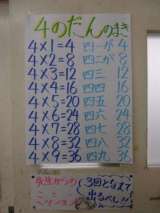 4のだんのまき
4×1=4 四一が 4
4×2=8 四二が 8
4×3=12 四三 12
4×4=16 四四 16
4×5=20 四五 20
4×6=24 四六 24
4×7=28 四七 28
4×8=32 四八 32
4×9=36 四九 36
先生からの
3回となえて
出るべし!!